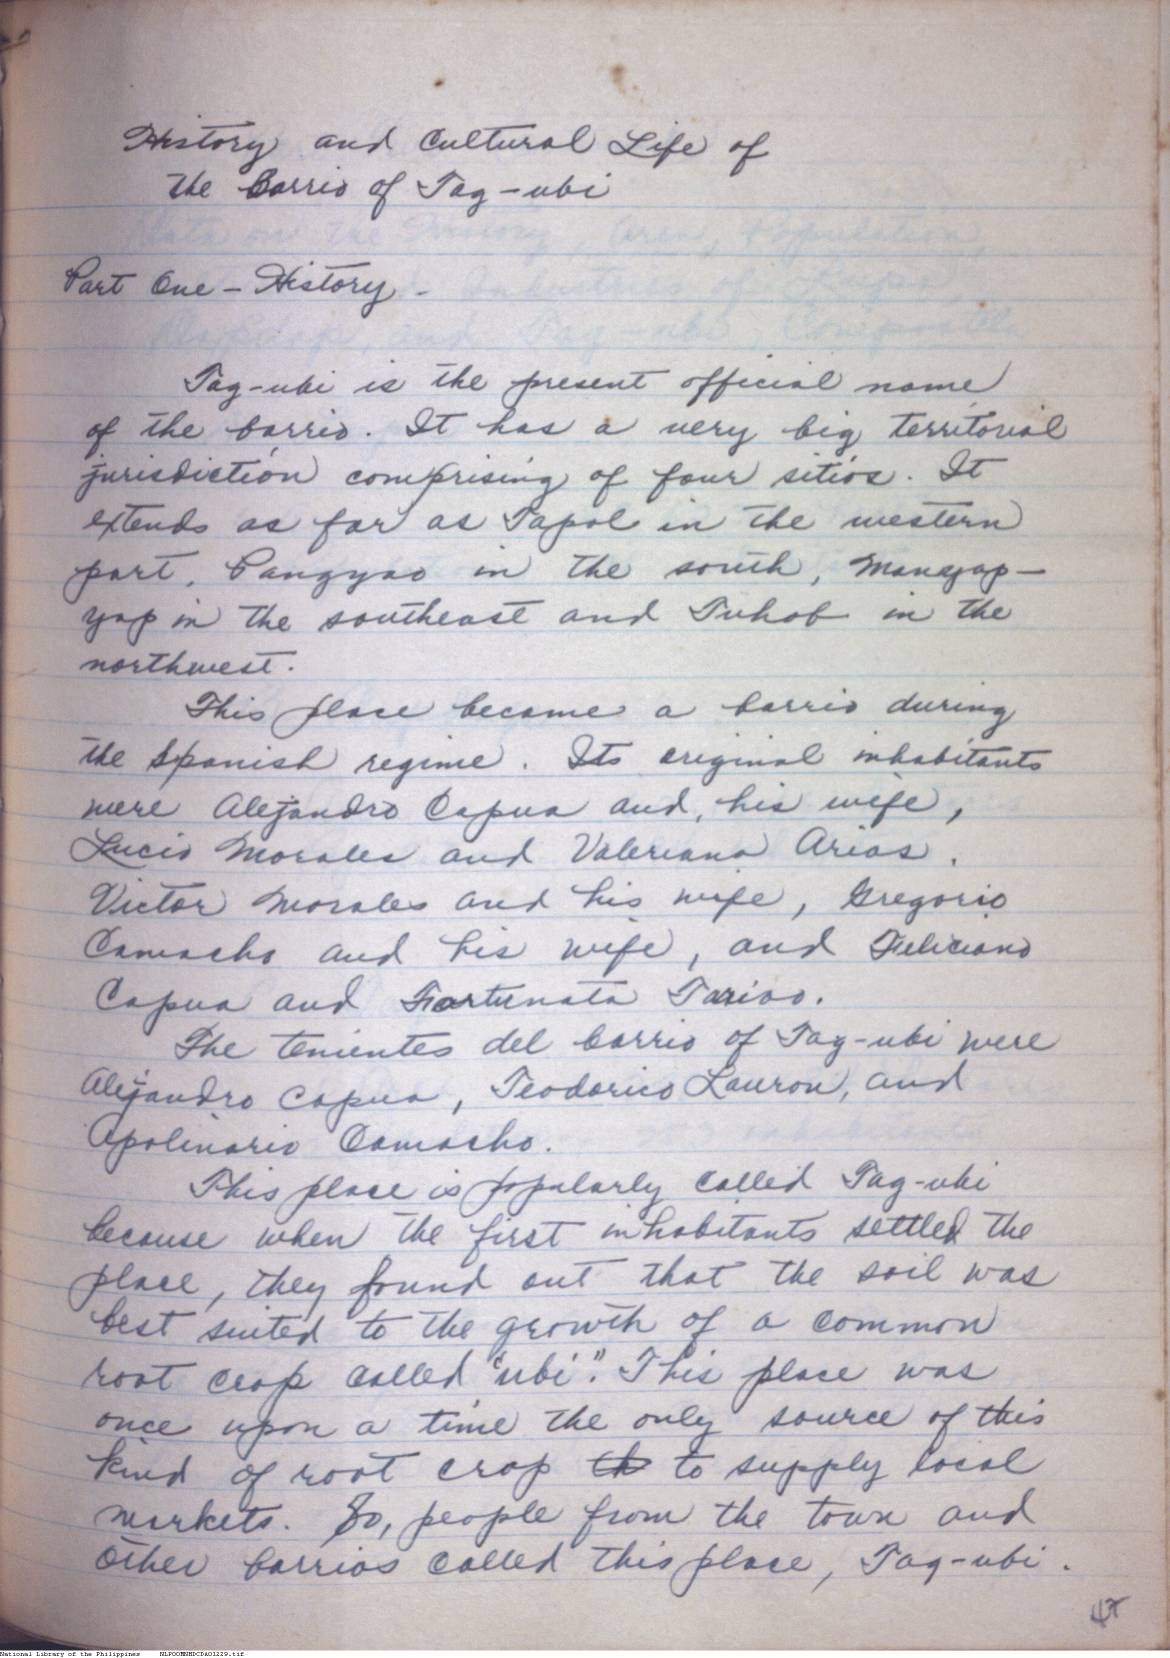 History and Cultural Life of
the Barrio of Tag-ubi
Part One - History -
Tag-ubi is the present official name
of the barrio. It has a very big territorial
jurisdiction comprising of four sitios. It
extends as far as Tapol in the western
part, Pangyao in the south, Manyap-
yap in the southeast and Tuhob in the
northwest.
This place became a barrio during
the Spanish regime. Its original inhabitants
were Alejandro Capua and, his wife,
Lucio Morales and Valeriana Arias.
Victor Morales and his wife, Gregorio
Camacho and his wife, and Feliciano
Capua and Fortunata
The tenientes del barrio of Tag-ubi were
Alejandro Capua, Teodorico Lauron, and
Apolinario Camacho.
This place is popularly called Tag-ubi
because when the first inhabitants settled the
place, they found out that the soil was
best suited to the growth of a common
root crop called "ubi". This place was
once upon a time the only source of this
kind of root crop th to supply local
markets. So, people from the town and
other barrios called this place, Tag-ubi.
National Library of the Philippines